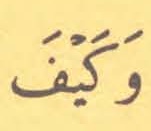 وَكَيْفَ